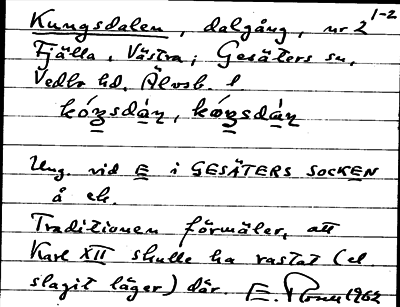 Kungsdalen, dalgång, nr 2 1-2
Fjälla, Västra; Gesäters sn,
Vedbo hd. Älvsb. l
kóŋsdáṉ, kóŋsdáṉ
Ung. vid E i GESÄTERS SOCKEN
å ek.
Traditionen förmäler, att
Karl XII skulle ha rastat (el
slagit läger) där. E. 1962